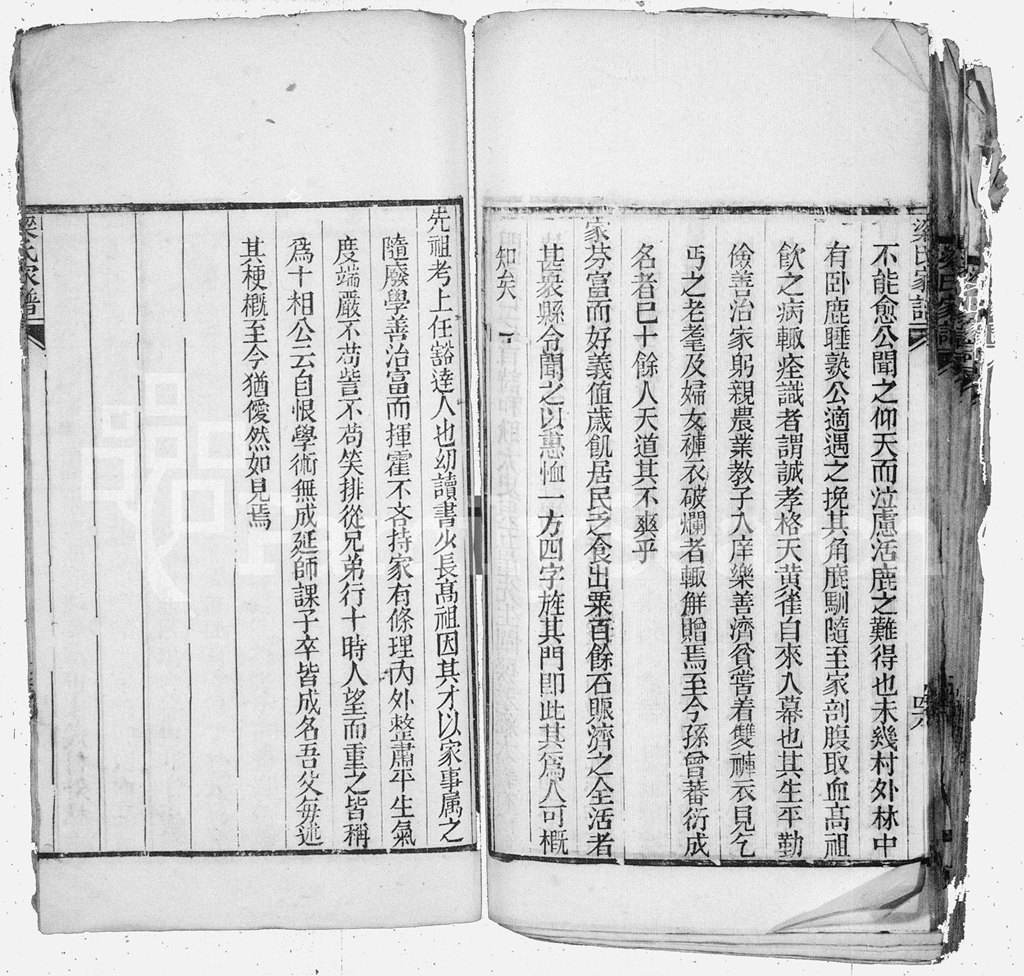 梁氏家譜
不能愈公聞之仰天而泣慮活鹿之難得也未幾村外林中
有卧鹿睡熟公適遇之挽其角鹿馴隨至家剖腹取血高祖
飲之病輒痊識者謂誠孝格天黃雀自來入幕也其生平勤
儉善治家躬親農業教子入庠樂善濟貧嘗着雙褲衣見乞
丐之老耄及婦女褲衣破爛者輒觧贈焉至今孫曾蕃衍成
名者已十餘人天道其不爽乎
家芬富而好義值歲飢居民乏食出粟百餘石賑濟之全活者
甚衆縣令聞之以惠恤一方四字旌其門即此其為人可概
知矣
先祖考上任豁達人也幼讀書少長高祖因其才以家事属之
隨廢學善治富而揮霍不吝持家有條理内外整肅平生氣
度端嚴不苟訾不苟笑排從兄弟行十時人望而重之皆稱
為十相公云自恨學術無成延師課子卒皆成名吾父每述
其梗概至今猶僾然如見焉
梁氏家譜